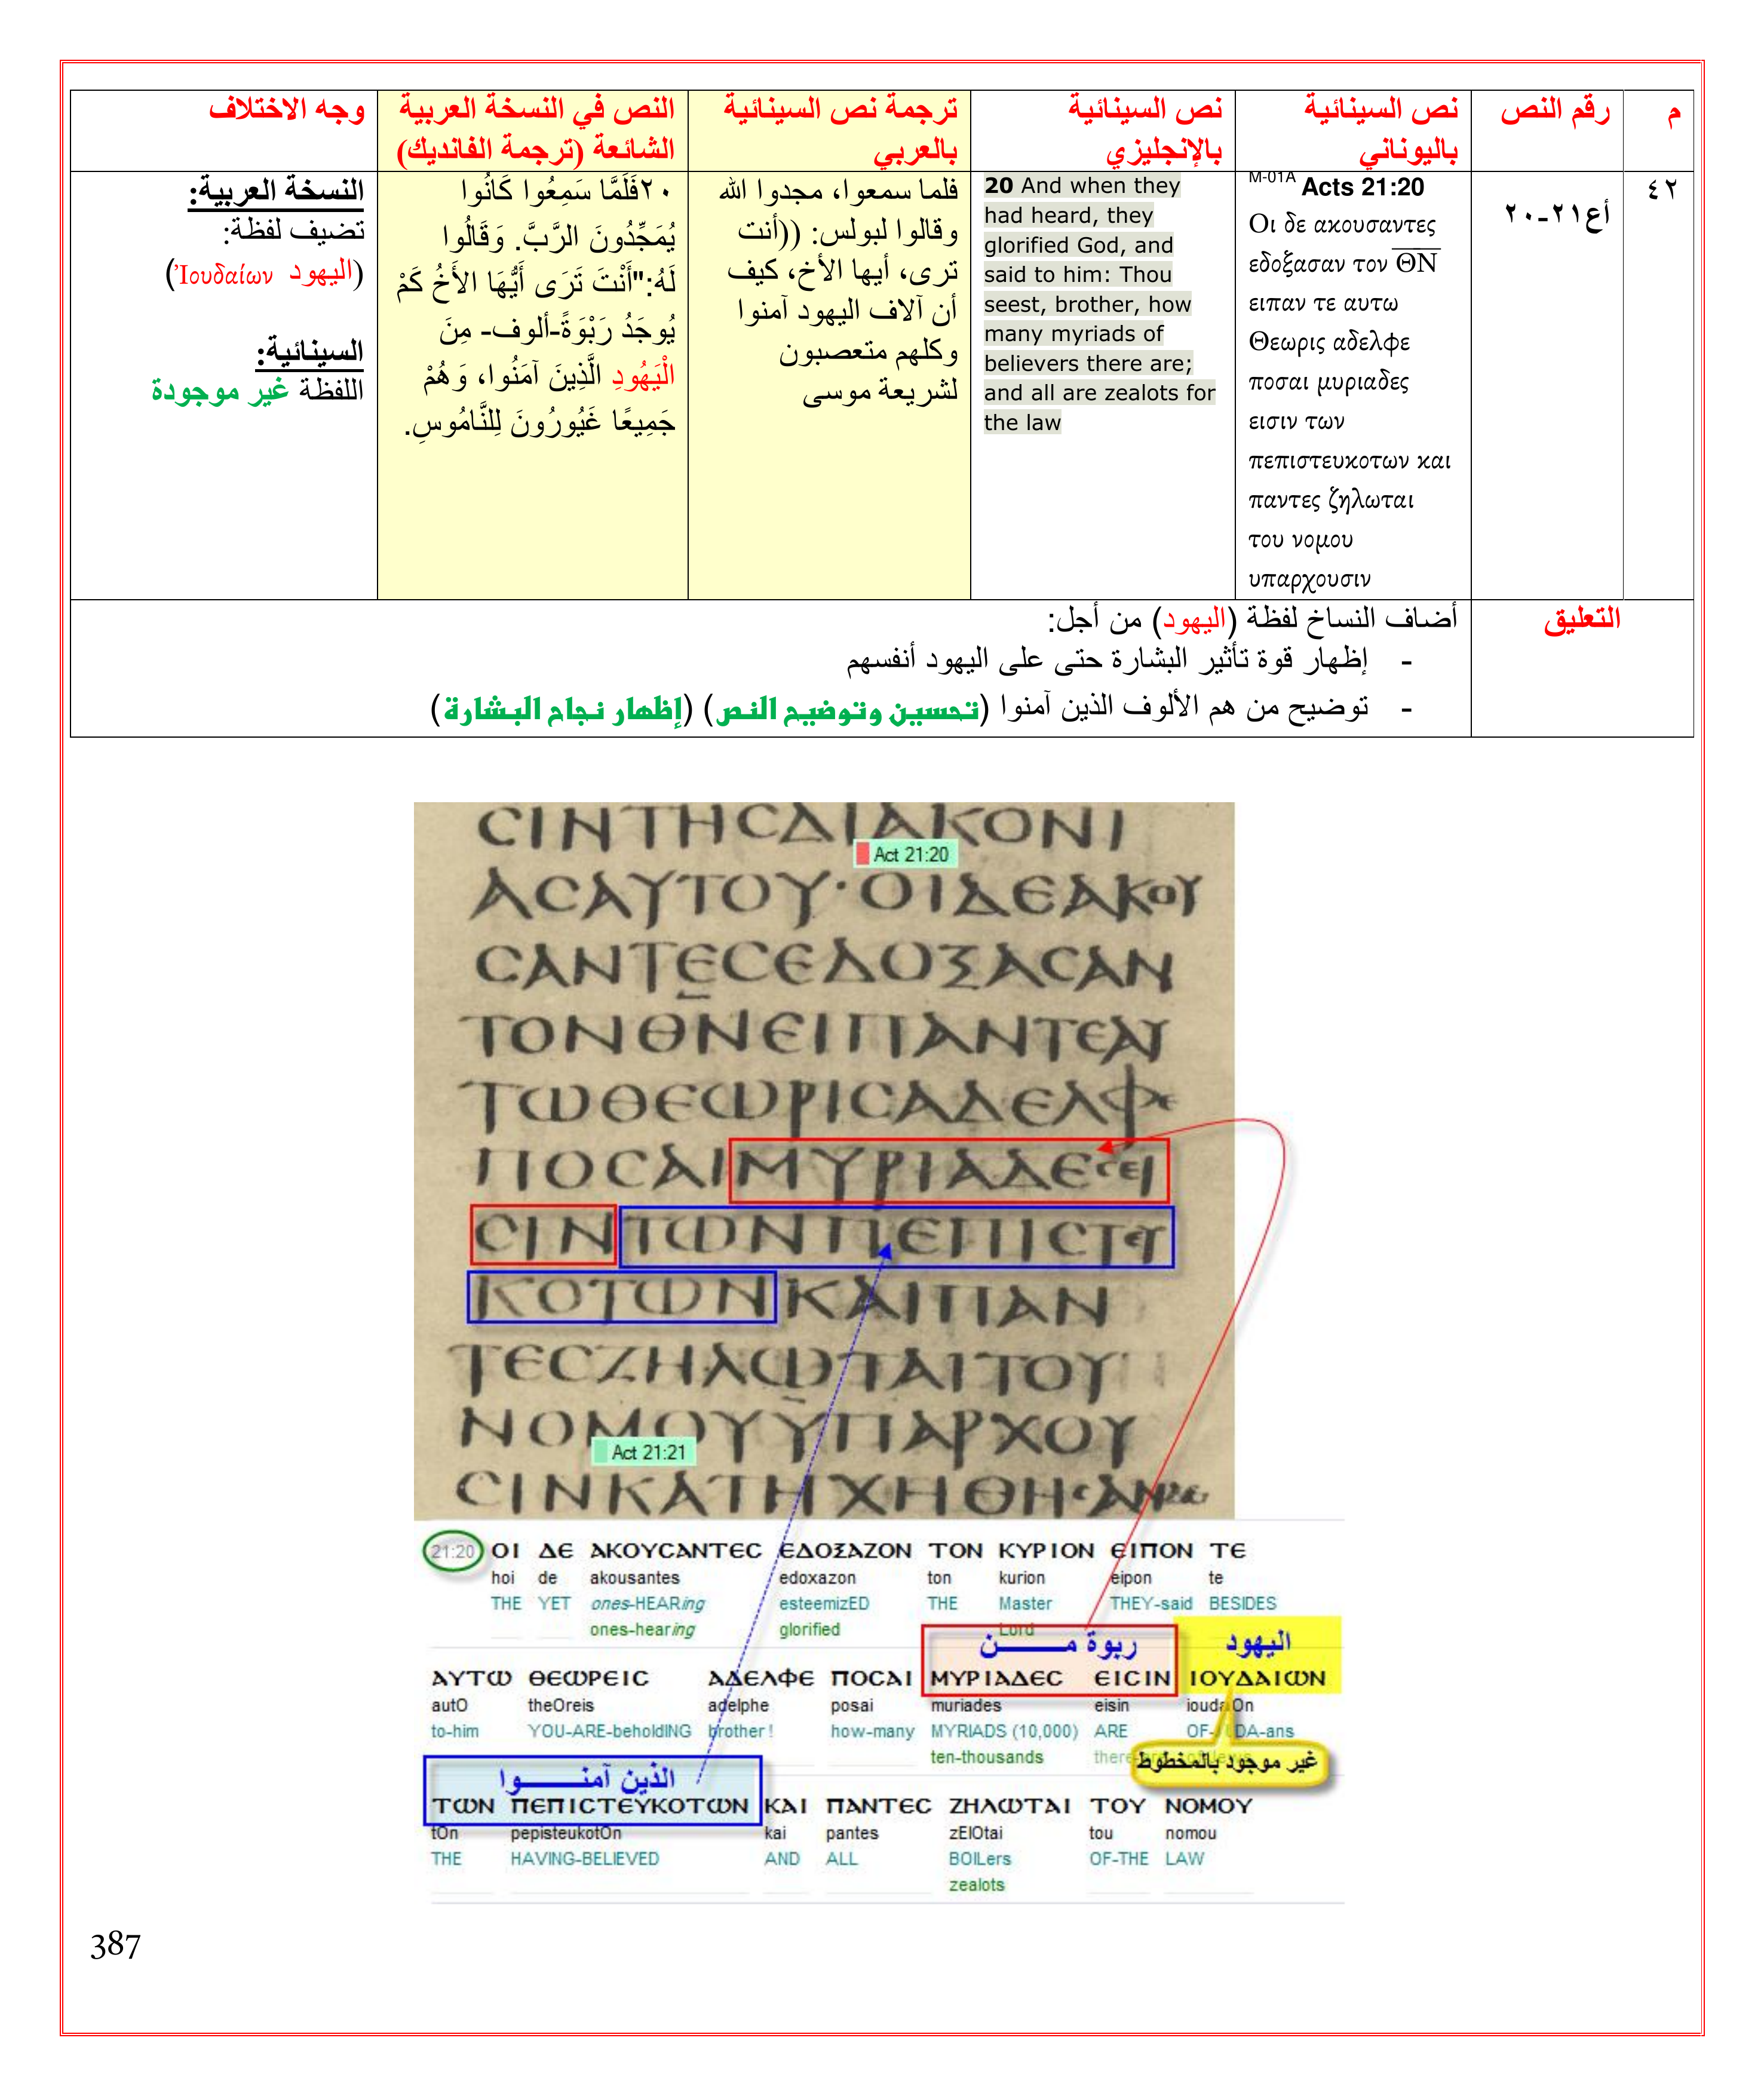 م
رقم النص
نص السينائية
باليوناني
نص السينائية
بالإنجليزي
ترجمة نص السينائية
بالعربي
النص في النسخة العربية
الشائعة (ترجمة الفانديك)
وجه الاختلاف
٤٢
أع٢١-٢٠
M-01A Acts 21:20
Οι δε ακουσαντες
εδοξασαν τον Θ̅Ν̅
ειπαν τε αυτω
Θεωρις αδελφε
ποσαι μυριαδες
εισιν των
πεπιστευκοτων και
παντες ζηλωται
του νομου
υπαρχουσιν
20 And when they
had heard, they
glorified God, and
said to him: Thou
seest, brother, how
many myriads of
believers there are;
and all are zealots for
the law
فلما سمعوا، مجدوا الله
وقالوا لبولس: ((أنت
ترى، أيها الأخ، كيف
أن آلاف اليهود آمنوا
وكلهم متعصبون
لشريعة موسى
٢٠فَلَمَّا سَمِعُوا كَانُوا
يُمَجِّدُونَ الرَّبَّ. وَقَالُوا
لَهُ:"أَنْتَ تَرَى أَيُّهَا الأَخُ كَمْ
يُوجَدُ رَبْوَةً-ألوف- مِنَ
الْيَهُودِ الَّذِينَ آمَنُوا، وَهُمْ
جَمِيعًا غَيُورُونَ لِلنَّامُوسِ.
النسخة العربية:
تضيف لفظة:
(اليهود Ἰουδαίων)
السينائية:
اللفظة غير موجودة
التعليق
أضاف النساخ لفظة (اليهود) من أجل:
- إظهار قوة تأثير البشارة حتى على اليهود أنفسهم
- توضيح من هم الألوف الذين آمنوا (تحسين وتوضيح النص) (إظهار نجاح البشارة)
ϹΙΝΤΗϹΔΙΑΚΟΝΙ
Act 21:20
ΑϹΑΥΤΟΥ·ΟΙΔΕΑΚΟΥ
ϹΑΝΤΕϹΕΔΟΞΑϹΑΝ
ΤΟΝΘΝΕΙΠΑΝΤΕΑΥ
ΤΩΘΕΩΡΙϹΑΔΕΛΦΕ
ΠΟϹΑΙΜΥΡΙΑΔΕϹΕΙ
ϹΙΝΤΩΝΠΕΠΙϹΤΕΥ
ΚΟΤΩΝΚΑΙΠΑΝ
ΤΕϹΖΗΛΩΤΑΙΤΟΥ
ΝΟΜΟΥΥΠΑΡΧΟΥ
Act 21:21
ϹΙΝΚΑΤΗΧΗΘΗϹΑΝ
21:20 ΟΙ ΔΕ ΑΚΟΥϹΑΝΤΕϹ ΕΔΟΞΑΖΟΝ ΤΟΝ ΚΥΡΙΟΝ ΕΙΠΟΝ ΤΕ
hoi de akousantes edoxazon ton kurion eipon te
THE YET ones-HEARing esteemizED THE Master THEY-said BESIDES
ones-hearing glorified Lord
ربوة مـــن اليهود
ΑΥΤΩ ΘΕΩΡΕΙϹ ΑΔΕΛΦΕ ΠΟϹΑΙ ΜΥΡΙΑΔΕϹ ΕΙϹΙΝ ΙΟΥΔΑΙΩΝ
autO theOreis adelphe posai muriades eisin ioudaiOn
to-him YOU-ARE-beholdING brother! how-many MYRIADS (10,000) ARE OF-JUDA-ans
ten-thousands
غير موجود بالمخطوط
الذين آمنـــوا
ΤΩΝ ΠΕΠΙϹΤΕΥΚΟΤΩΝ ΚΑΙ ΠΑΝΤΕϹ ΖΗΛΩΤΑΙ ΤΟΥ ΝΟΜΟΥ
tOn pepisteukotOn kai pantes zElOtai tou nomou
THE HAVING-BELIEVED AND ALL BOILers OF-THE LAW
zealots
387